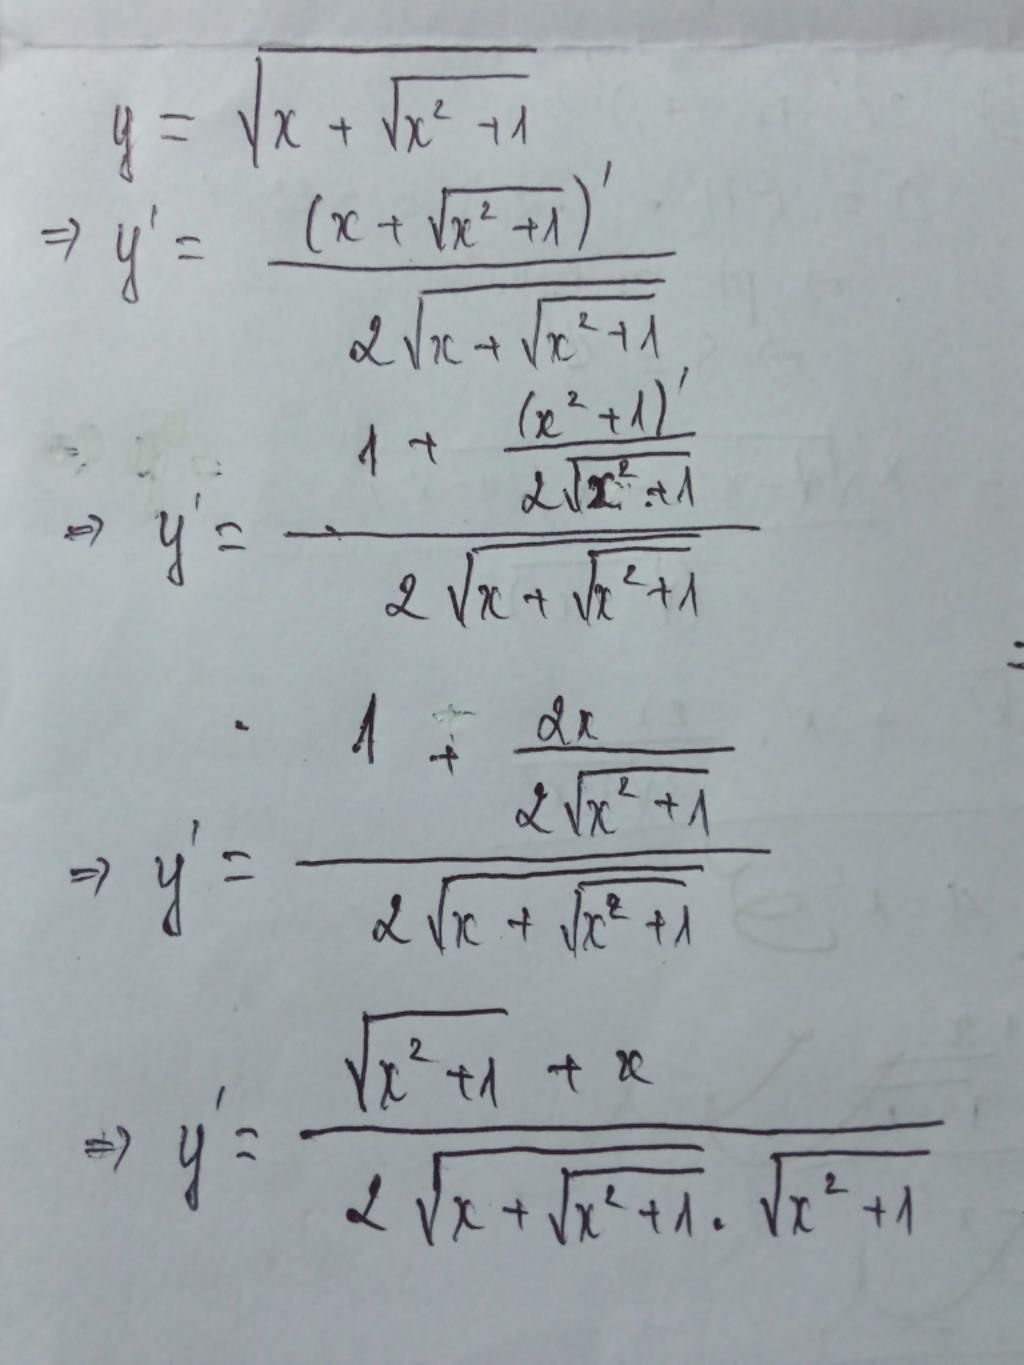 y = √(x + √(x² + 1))
⇒ y' = (x + √(x² + 1))' / (2√(x + √(x² + 1)))
⇒ y' = (1 + (x² + 1)' / (2√(x² + 1))) / (2√(x + √(x² + 1)))
⇒ y' = (1 + 2x / (2√(x² + 1))) / (2√(x + √(x² + 1)))
⇒ y' = (√(x² + 1) + x) / (2√(x + √(x² + 1)) . √(x² + 1))